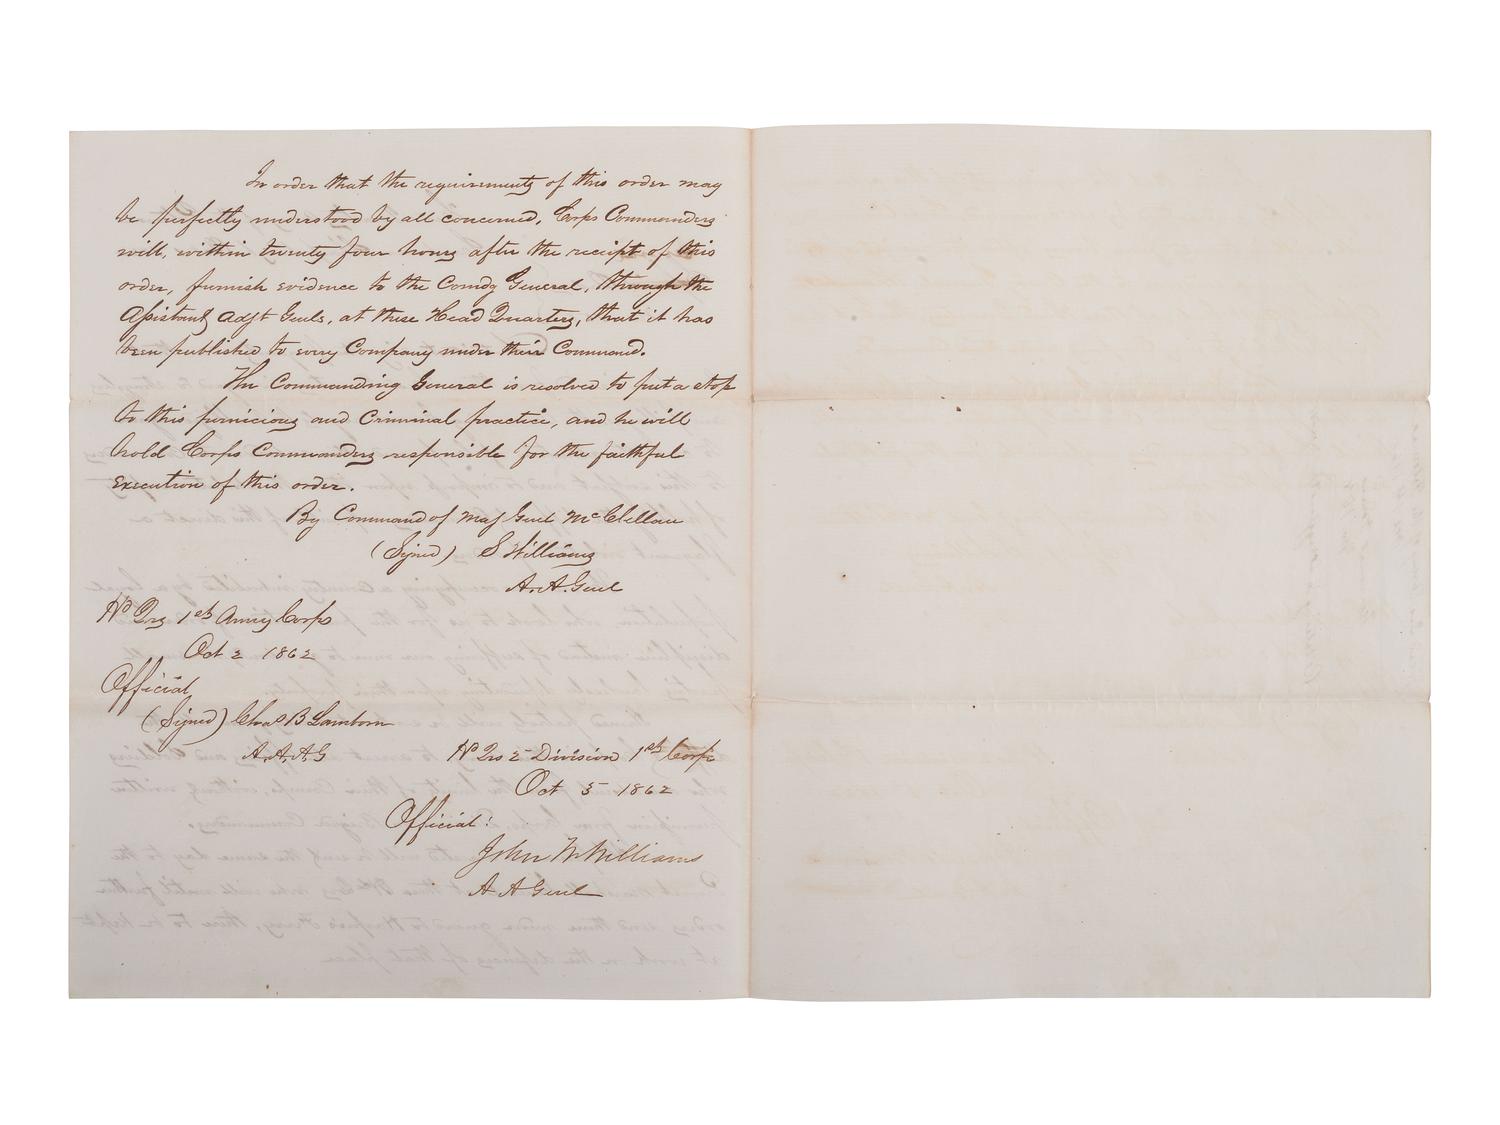 In order that the requirements of this order may
be perfectly understood by all concerned, Corps Commanders
will, within twenty four hours after the receipt of this
order, furnish evidence to the Comdg General, through the
Assistant Adjt Genls, at these Head Quarters, that it has
been published to every Company under their Command.
The Commanding General is resolved to put a stop
to this pernicious and Criminal practice, and he will
hold Corps Commanders responsible for the faithful
Execution of this order.
By Command of Maj Genl McClellan
(Signed) S Williams
A.A. Genl
Hd Qrs 1st Army Corps
Oct 2 1862
Official
(Signed) Chas B Lamborn
A.A.A.G
Hd Qrs 2 Division 1st Corps
Oct 5 1862
Official:
John W Williams
A A Genl